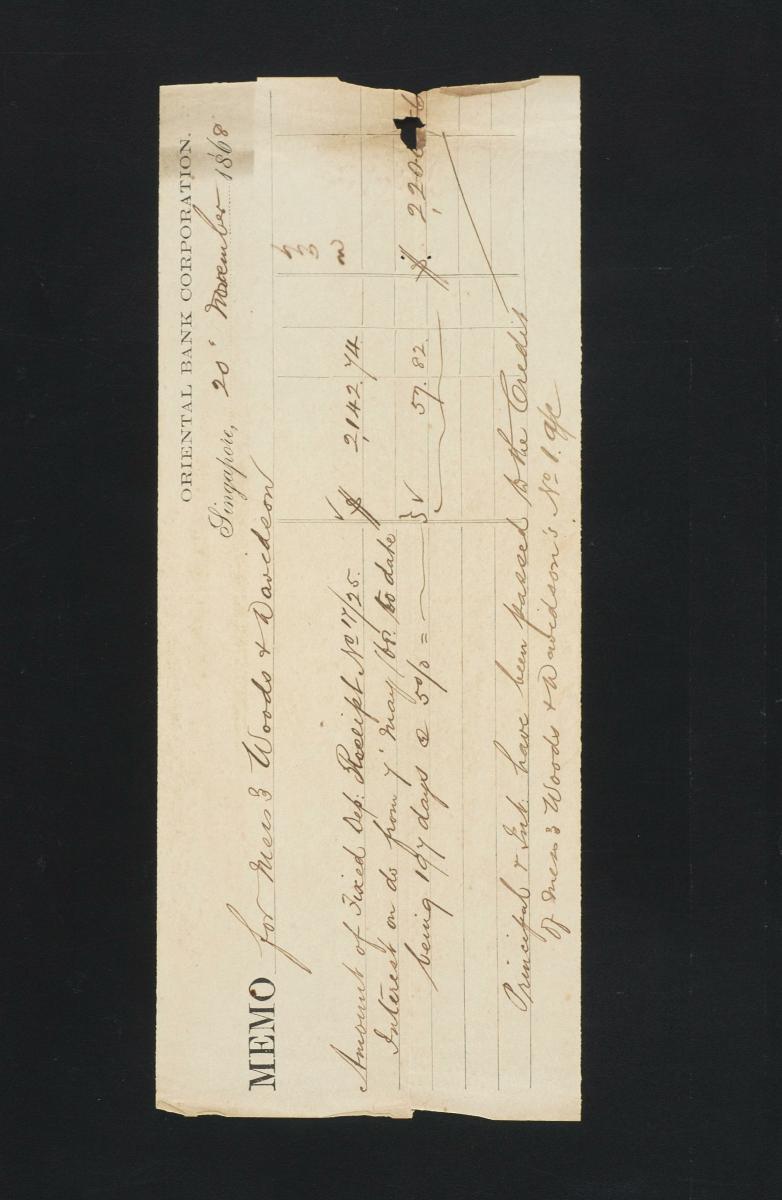 ORIENTAL BANK CORPORATION.
Singapore, 20 November 1868
MEMO for Messrs Woods & Davidson
Amount of Fixed Dep: Receipt No 17/25. $ 2,142.74
Interest on do from 7 May to date
being 197 days @ 5 % = 57.82 $ 2,200
Principal & Int. have been passed to the Credit
of Messrs Woods & Davidson's No 1. a/c